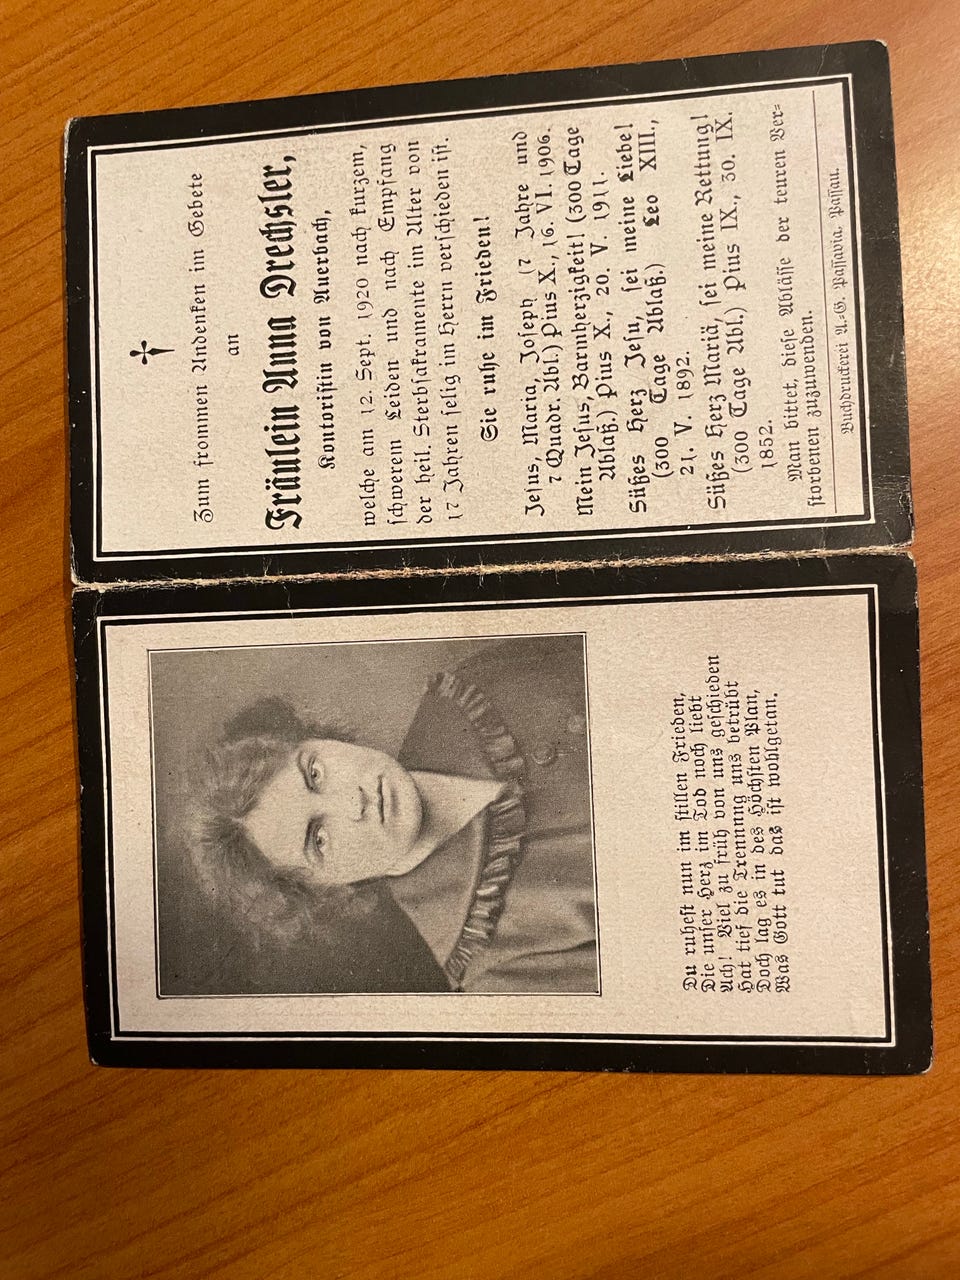 Du ruhest nun im stillen Frieden,
Die unser Herz im Tod noch liebt
Ach! Viel zu früh von uns geschieden
Hat tief die Trennung uns betrübt
Doch lag es in des Höchsten Plan,
Was Gott tut das ist wohlgetan.
Zum frommen Andenken im Gebete
an
Fräulein Anna Drechsler,
Kontoristin von Auerbach,
welche am 12. Sept. 1920 nach kurzem,
schwerem Leiden und nach Empfang
der heil. Sterbsakramente im Alter von
17 Jahren selig im Herrn verschieden ist.
Sie ruhe im Frieden!
Jesus, Maria, Joseph (7 Jahre und
7 Quadr. Abl.) Pius X., 16. VI. 1906.
Mein Jesus, Barmherzigkeit! (300 Tage
Ablaß.) Pius X., 20. V. 1911.
Süßes Herz Jesu, sei meine Liebe!
(300 Tage Ablaß.) Leo XIII.,
21. V. 1892.
Süßes Herz Mariä, sei meine Rettung!
(300 Tage Abl.) Pius IX., 30. IX.
1852.
Man bittet, diese Ablässe der teuren Ver=
storbenen zuzuwenden.
Buchdruckerei A.=G. Passavia, Passau.